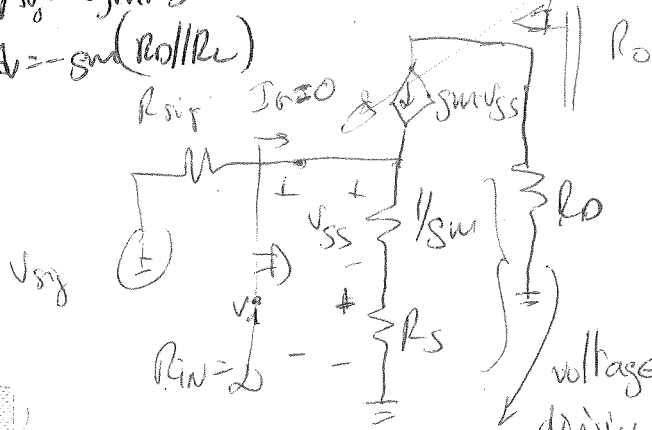 Av = -gm(RD//RL)
Rsig
IG=0
gmvss
Ro
Vsig
Vss
1/gm
RD
Vi
RS
RIN = ∞
voltage